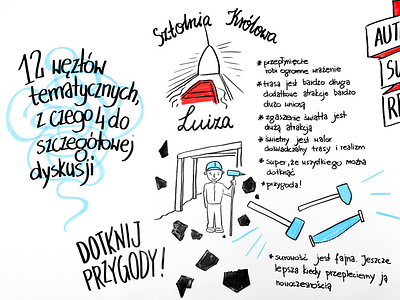 12 węzłów
tematycznych,
z czego 4 do
szczegółowej
dyskusji
DOTKNIJ
PRZYGODY!
Sztolnia Królowa
Luiza
* przepłynięcie
robi ogromne wrażenie
* trasa jest bardzo długa
dodatkowe atrakcje bardzo
dużo wniosą
* zgaszenie światła jest
dużą atrakcją
* świetny jest walor
doświadczalny trasy i realizm
* super, że wszystkiego można
dotknąć
* przygoda!
* surowość jest fajna. Jeszcze
lepsza kiedy przepleciemy ją
nowoczesnością
AUT
SU
RE